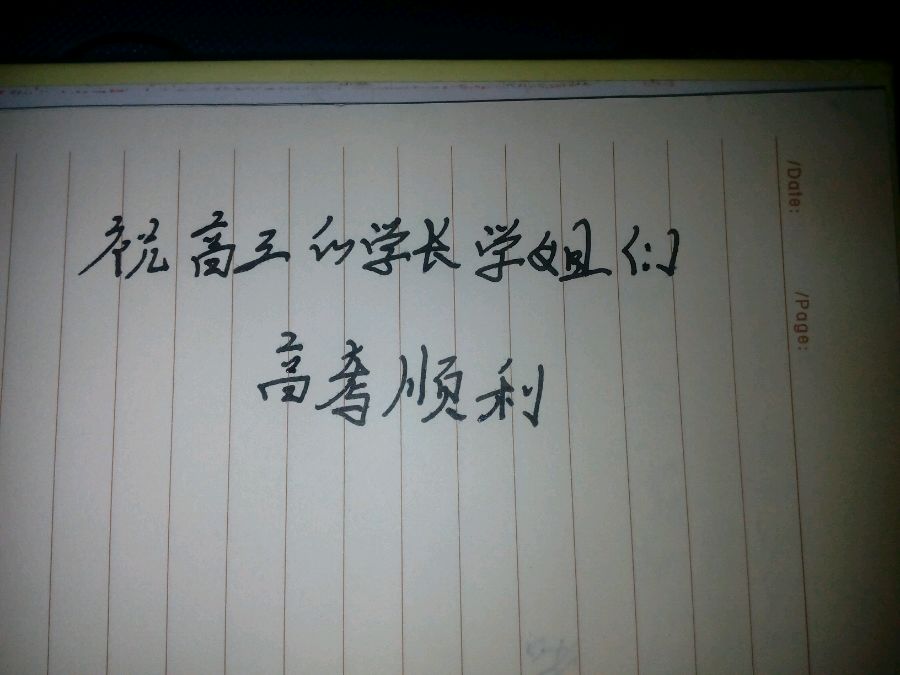 祝高三的学长学姐们
高考顺利
/Date:
/Page: